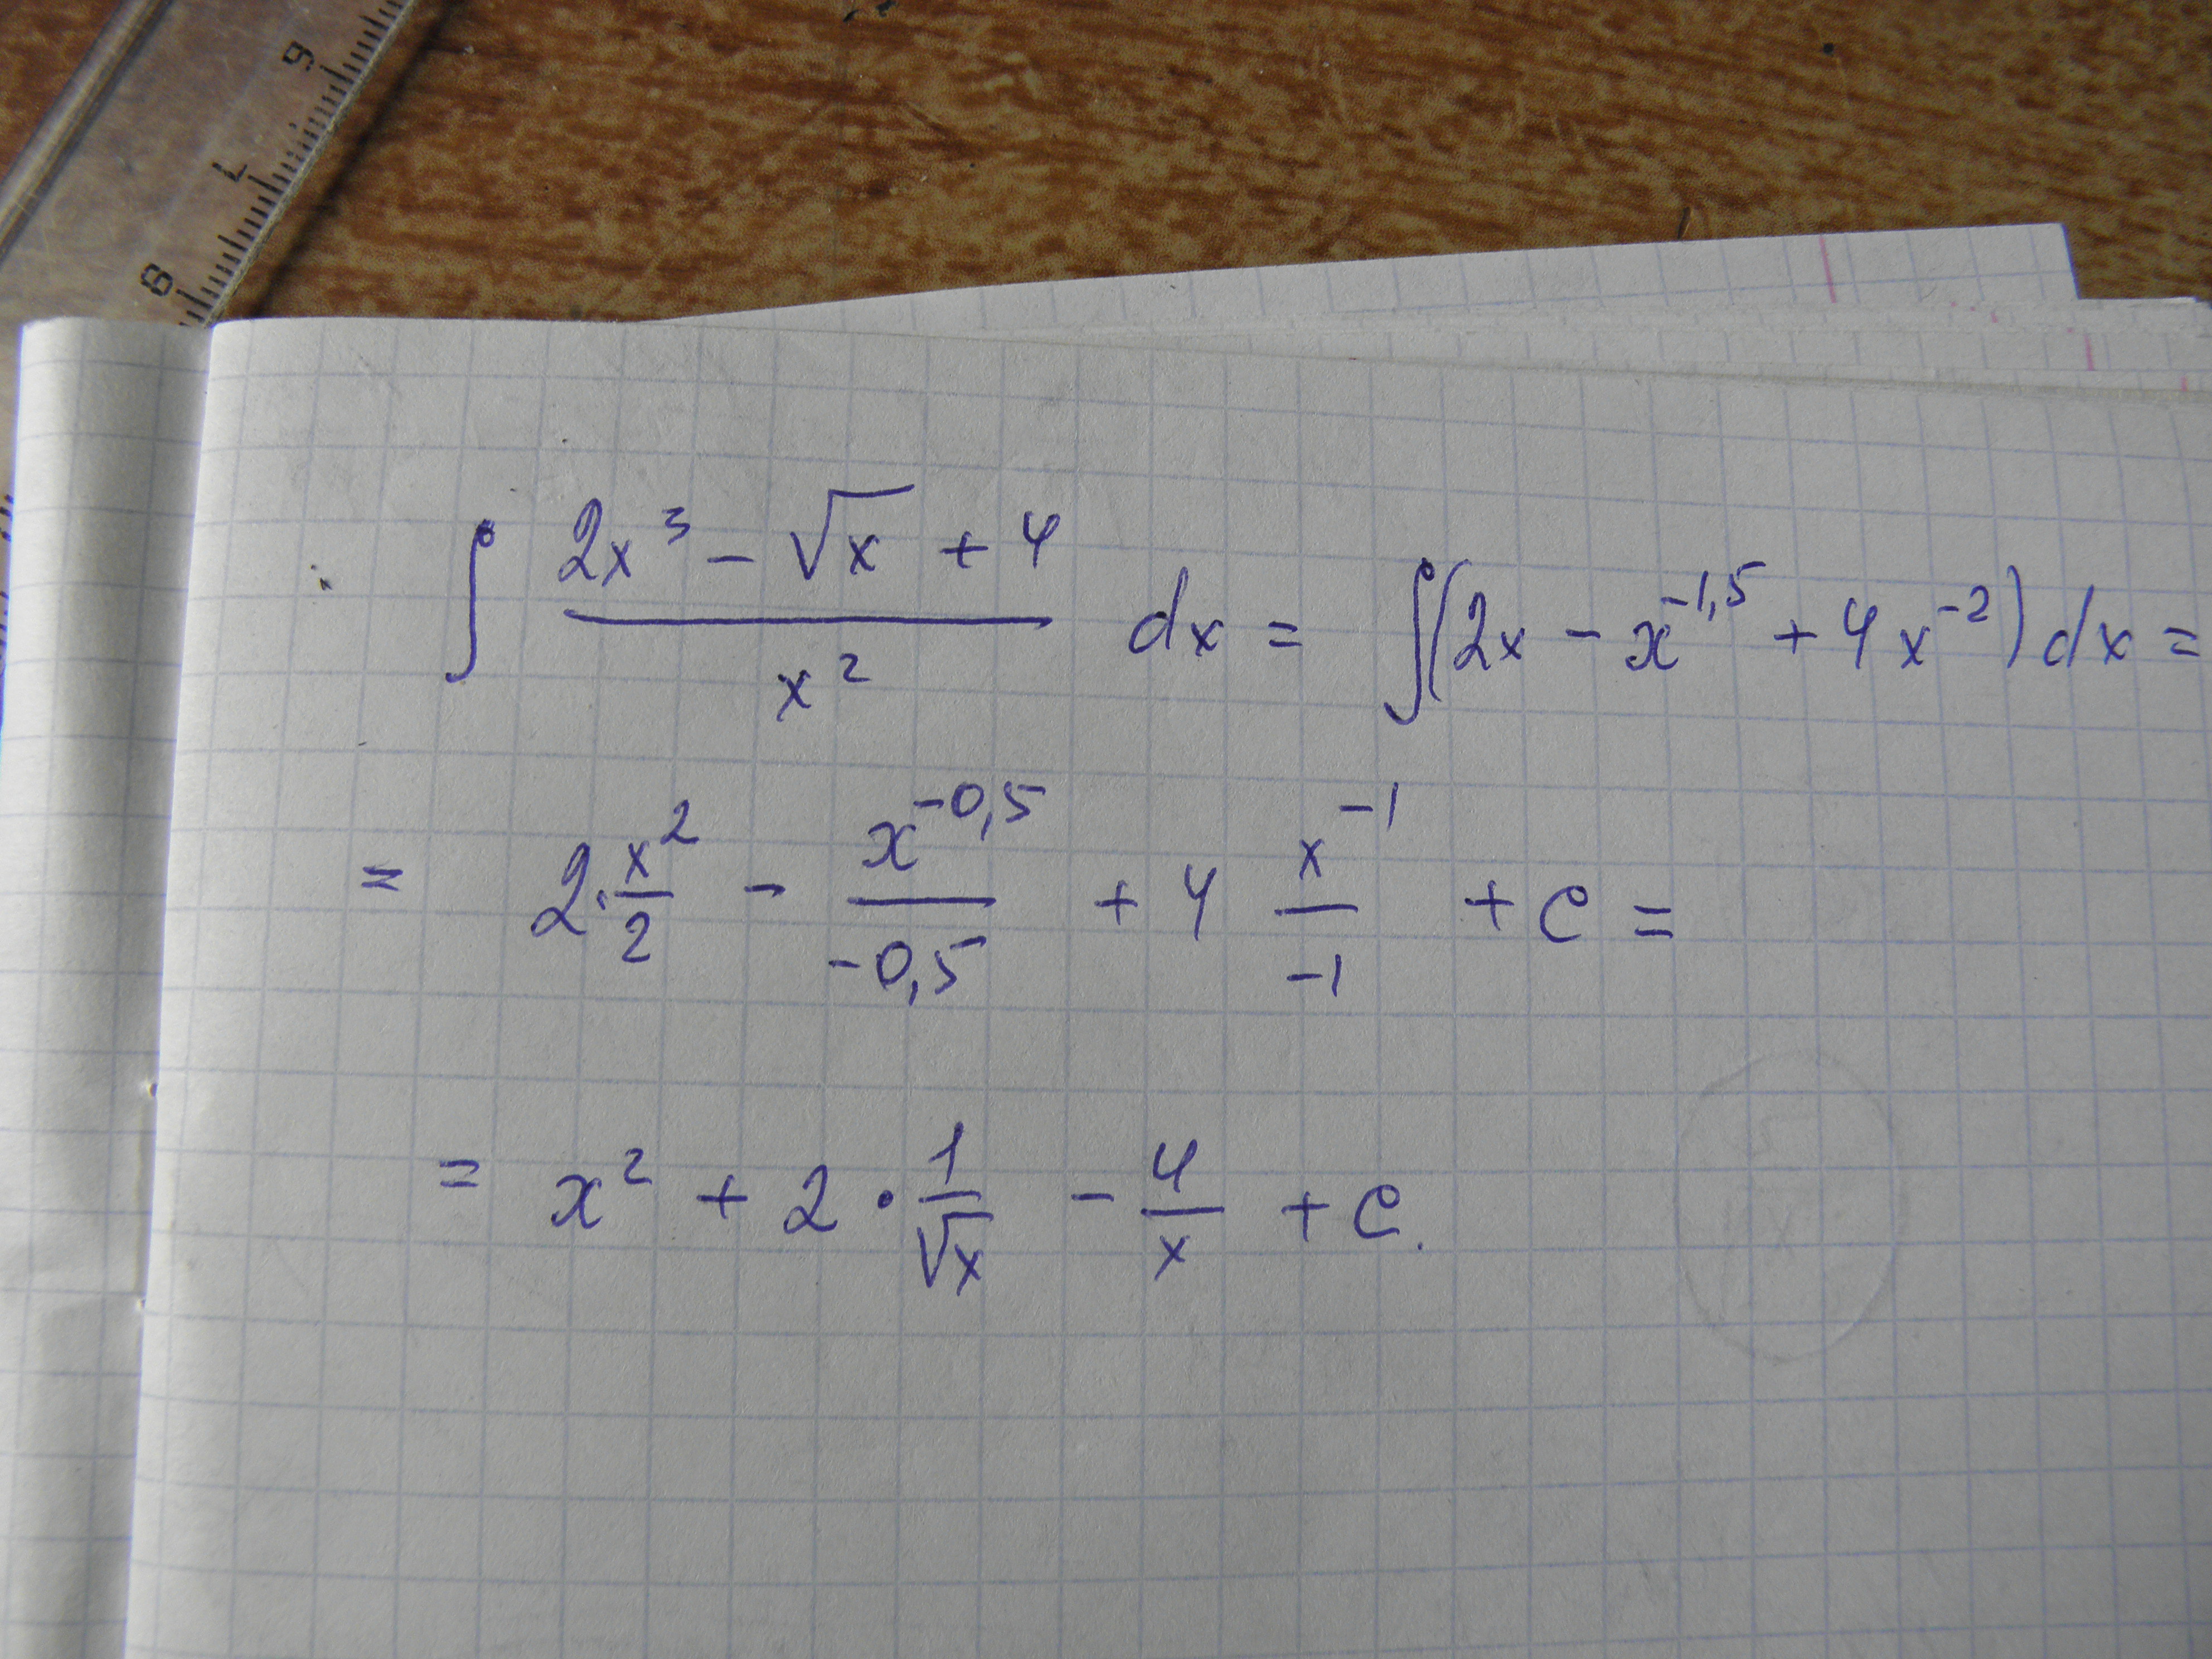 9
7
6
∫ (2x³ − √x + 4)/x² dx = ∫(2x − x^{-1,5} + 4x^{-2}) dx =
= 2·x²/2 − x^{-0,5}/-0,5 + 4 x^{-1}/-1 + c =
= x² + 2 · 1/√x − 4/x + c.